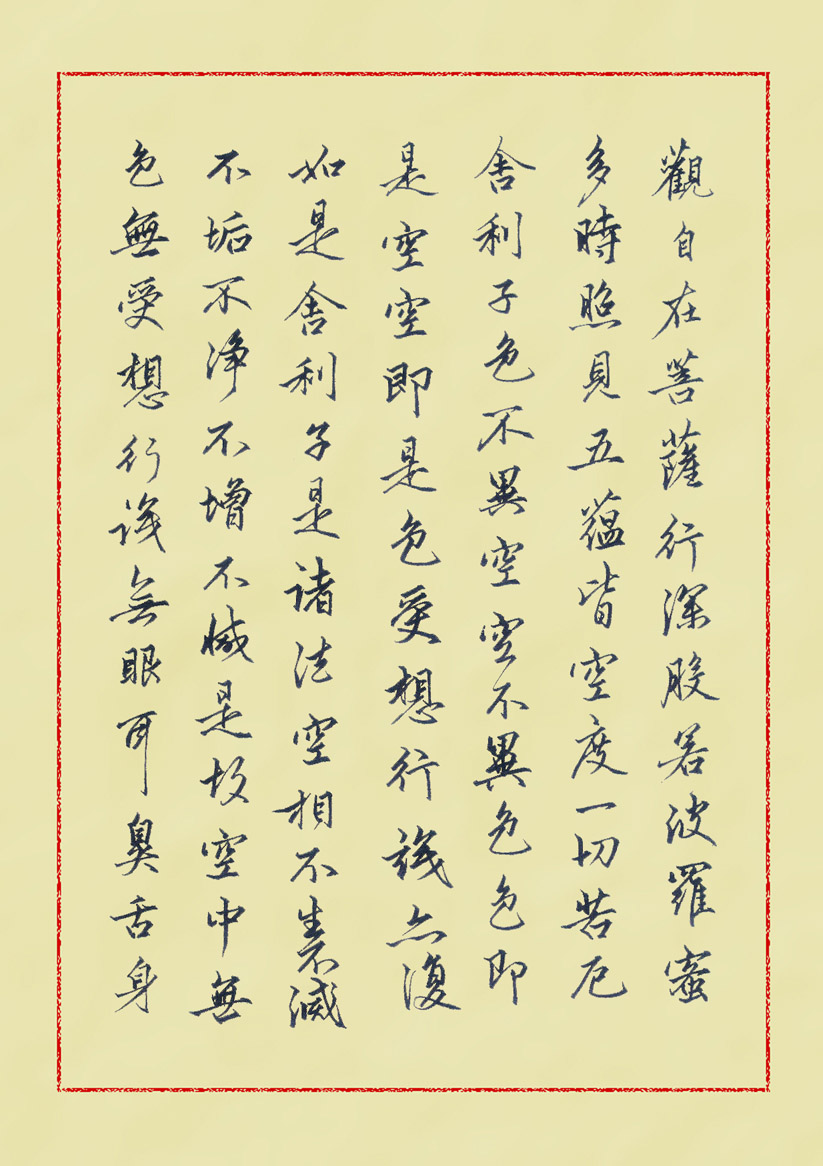 觀自在菩薩行深般若波羅蜜
多時照見五蘊皆空度一切苦厄
舍利子色不異空空不異色色即
是空空即是色受想行識亦復
如是舍利子是諸法空相不生不滅
不垢不淨不增不減是故空中無
色無受想行識無眼耳鼻舌身